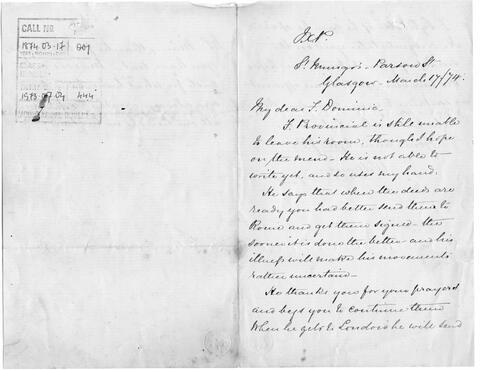 CALL NO.
1874-03-17 001
YEAR-MONTH-DAY
1973-07-04 444
JXP.
St Mungo's - Parson St
Glasgow - March 17/74.
My dear F. Dominic,
F. Provincial is still unable
to leave his room, though I hope
on the mend - He is not able to
write yet, and so uses my hand.
He says that when the deeds are
ready you had better send them to
Rome and get them signed - the
sooner it is done the better - and his
illness will make his movements
rather uncertain -
He thanks you for your prayers
and begs you to continue them
When he gets to London he will send